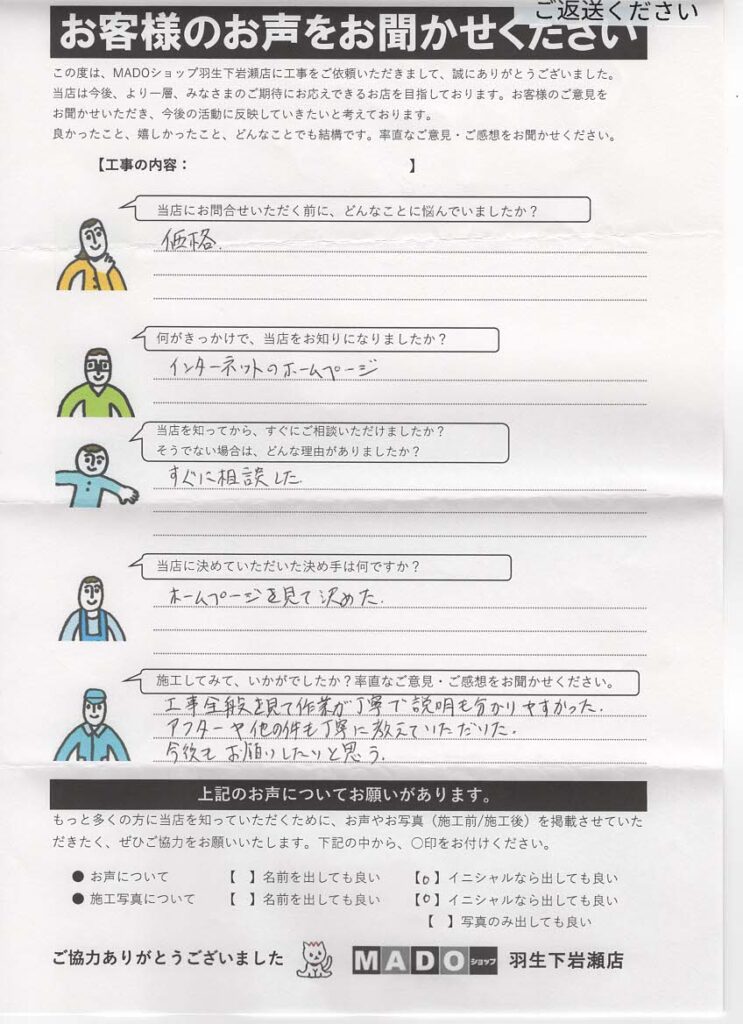 ご返送ください
お客様のお声をお聞かせください
この度は、MADOショップ羽生下岩瀬店に工事をご依頼いただきまして、誠にありがとうございました。
当店は今後、より一層、みなさまのご期待にお応えできるお店を目指しております。お客様のご意見を
お聞かせいただき、今後の活動に反映していきたいと考えております。
良かったこと、嬉しかったこと、どんなことでも結構です。率直なご意見・ご感想をお聞かせください。
【工事の内容： 】
当店にお問合せいただく前に、どんなことに悩んでいましたか？
価格.
何がきっかけで、当店をお知りになりましたか？
インターネットのホームページ
当店を知ってから、すぐにご相談いただけましたか？
そうでない場合は、どんな理由がありましたか？
すぐに相談した.
当店に決めていただいた決め手は何ですか？
ホームページを見て決めた.
施工してみて、いかがでしたか？率直なご意見・ご感想をお聞かせください。
工事全般を見て作業が丁寧で説明も分かりやすかった.
アフターや他の件も丁寧に教えていただいた.
今後もお願いしたいと思う.
上記のお声についてお願いがあります。
もっと多くの方に当店を知っていただくために、お声やお写真（施工前/施工後）を掲載させていた
だきたく、ぜひご協力をお願いいたします。下記の中から、〇印をお付けください。
● お声について 【 】名前を出しても良い 【o】イニシャルなら出しても良い
● 施工写真について 【 】名前を出しても良い 【o】イニシャルなら出しても良い
【 】写真のみ出しても良い
ご協力ありがとうございました MADOショップ 羽生下岩瀬店